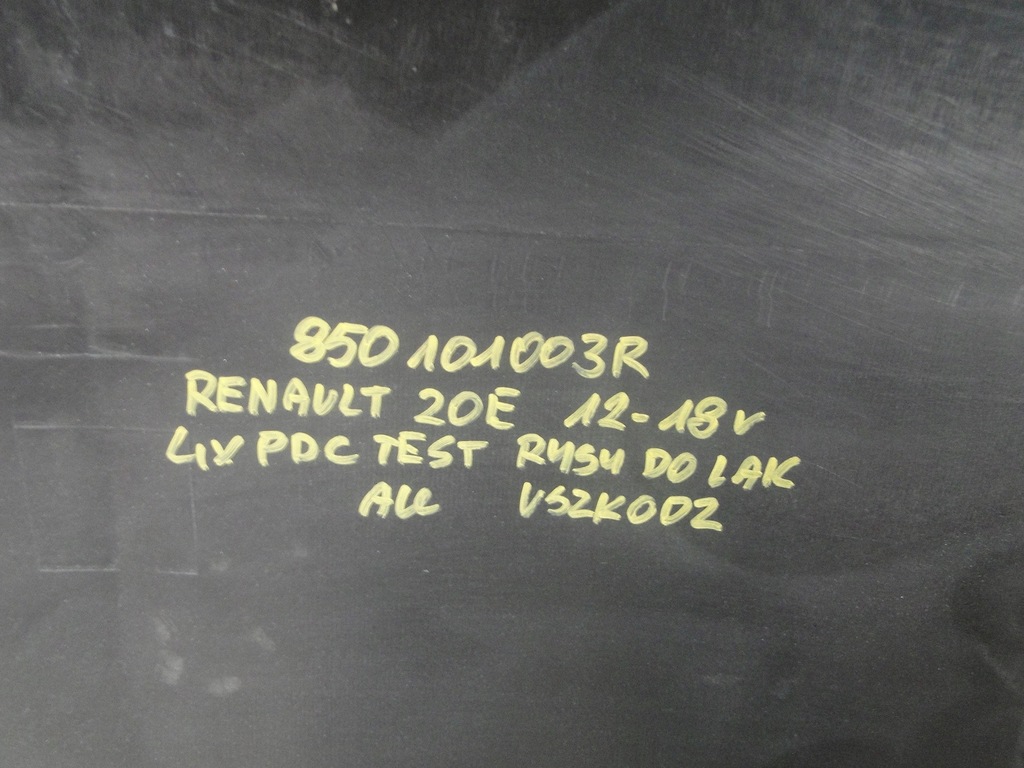 850101003R
RENAULT ZOE 12-18r
4x PDC TEST RYSY DO LAK
ALL USZKODZ